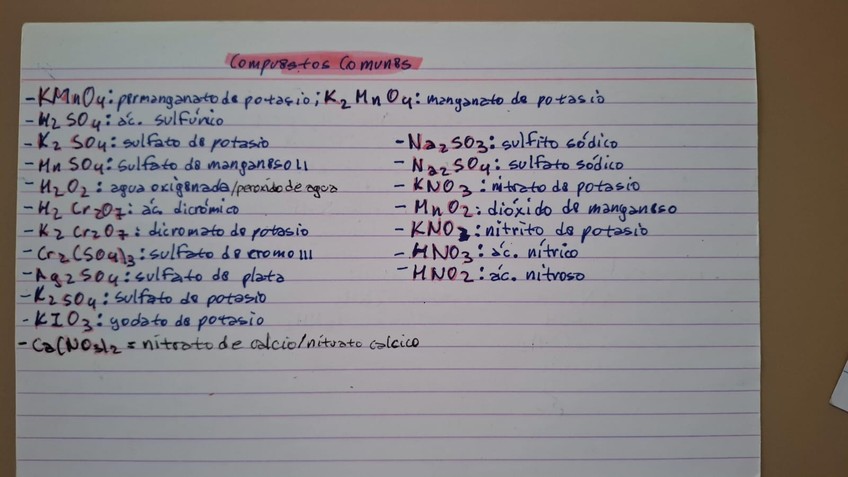 Compuestos Comunes
- KMnO4: permanganato de potasio; K2MnO4: manganato de potasio
- H2SO4: ác. sulfúrico
- K2SO4: sulfato de potasio
- MnSO4: sulfato de manganeso II
- H2O2: agua oxigenada/peroxido de agua
- H2Cr2O7: ác. dicrómico
- K2Cr2O7: dicromato de potasio
- Cr2(SO4)3: sulfato de cromo III
- Ag2SO4: sulfato de plata
- K2SO4: sulfato de potasio
- KIO3: yodato de potasio
- Ca(NO3)2 = nitrato de calcio/nitrato calcico
- Na2SO3: sulfito sódico
- Na2SO4: sulfato sódico
- KNO3: nitrato de potasio
- MnO2: dióxido de manganeso
- KNO2: nitrito de potasio
- HNO3: ác. nítrico
- HNO2: ác. nitroso